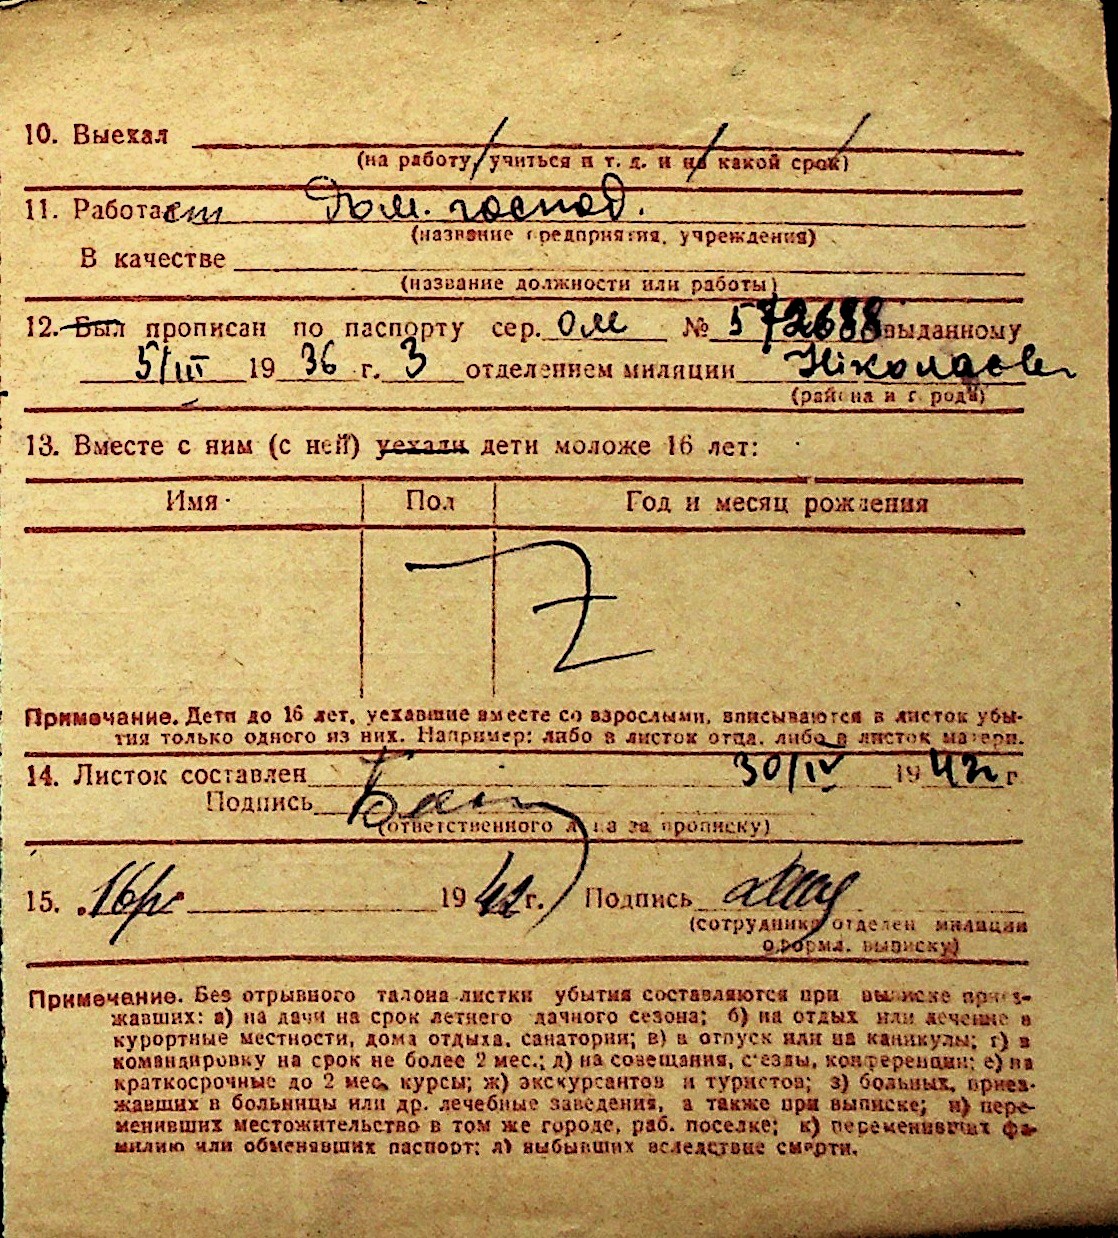 10. Выехал
(на работу, учиться и т. д. и на какой срок)
11. Работает Дом. господ.
(название предприятия, учреждения)
В качестве
(название должности или работы)
12. Был прописан по паспорту сер. ОМ № 572688 выданному
5/III 1936 г. 3 отделением милиции Николаев
(района и города)
13. Вместе с ним (с ней) уехали дети моложе 16 лет:
Имя Пол Год и месяц рождения
Z
Примечание. Дети до 16 лет, уехавшие вместе со взрослыми, вписываются в листок убы-
тия только одного из них. Например: либо в листок отца, либо в листок матери.
14. Листок составлен 30/IV 1942 г
Подпись
(ответственного лица за прописку)
15. 1942 г. Подпись
(сотрудника отделен милиции
оформл. выписку)
Примечание. Без отрывного талона листки убытия составляются при выписке приез-
жавших: а) на дачи на срок летнего дачного сезона; б) на отдых или лечение в
курортные местности, дома отдыха, санатории; в) в отпуск или на каникулы; г) в
командировку на срок не более 2 мес.; д) на совещания, с'езды, конференции; е) на
краткосрочные до 2 мес. курсы; ж) экскурсантов и туристов; з) больных, приез-
жавших в больницы или др. лечебные заведения, а также при выписке; и) пере-
менивших местожительство в том же городе, раб. поселке; к) переменивших фа-
милию или обменявших паспорт; л) выбывших вследствие смерти.